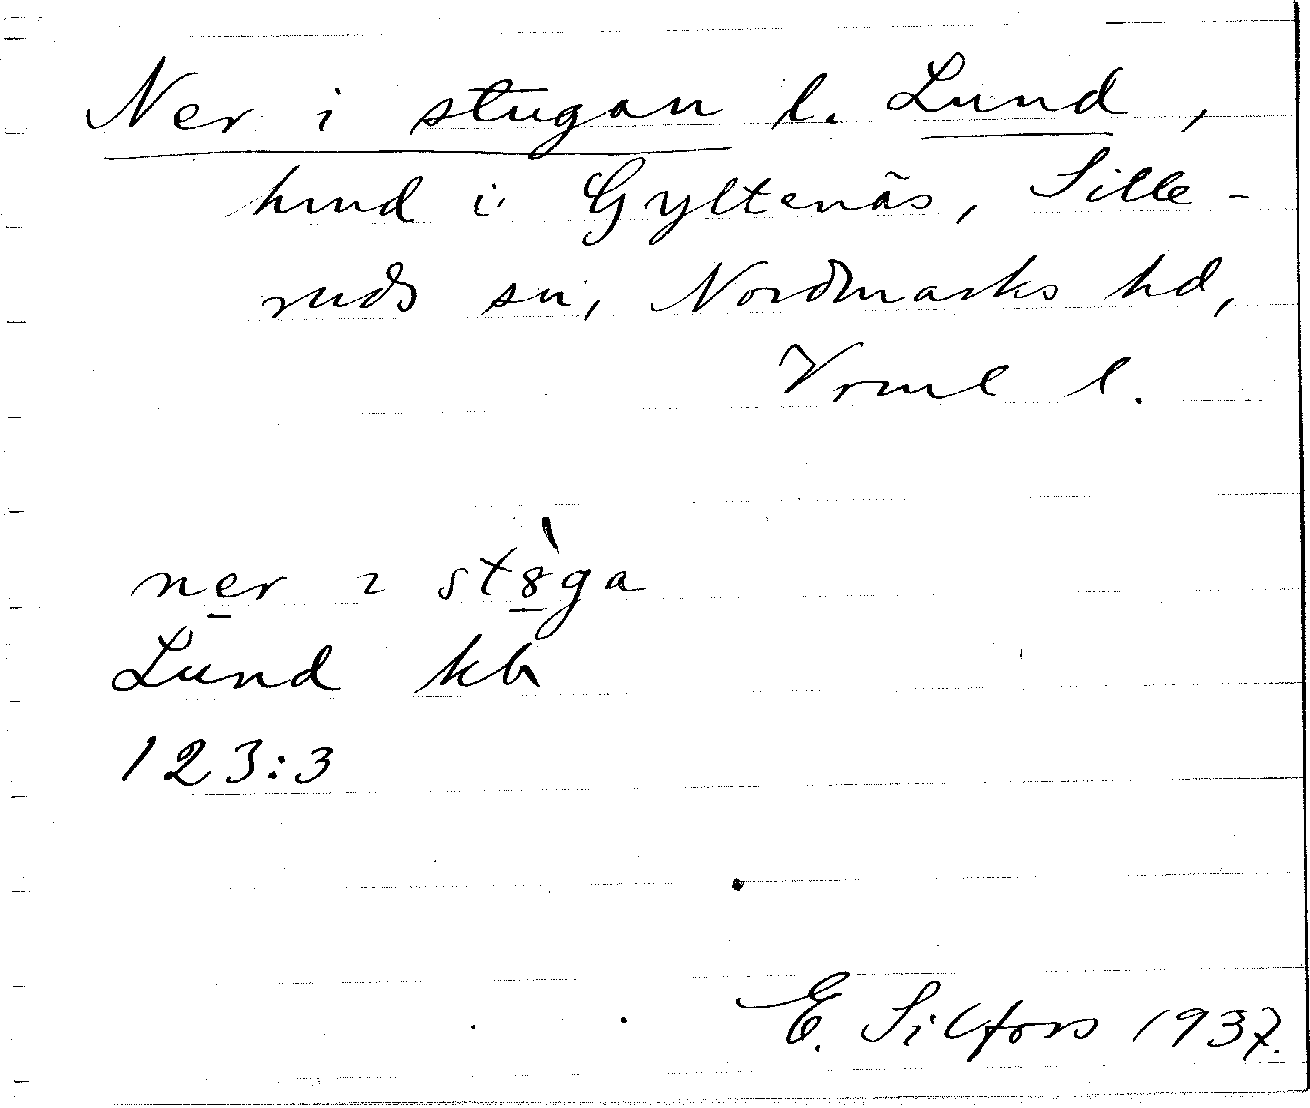 Ner i stugan l. Lund,
hmd i Gyltenäs, Sille-
ruds sn, Nordmarks hd,
Vrml l.
ner ɩ st8̀ga
Lund kb
123:3
E. Silfors 1937.